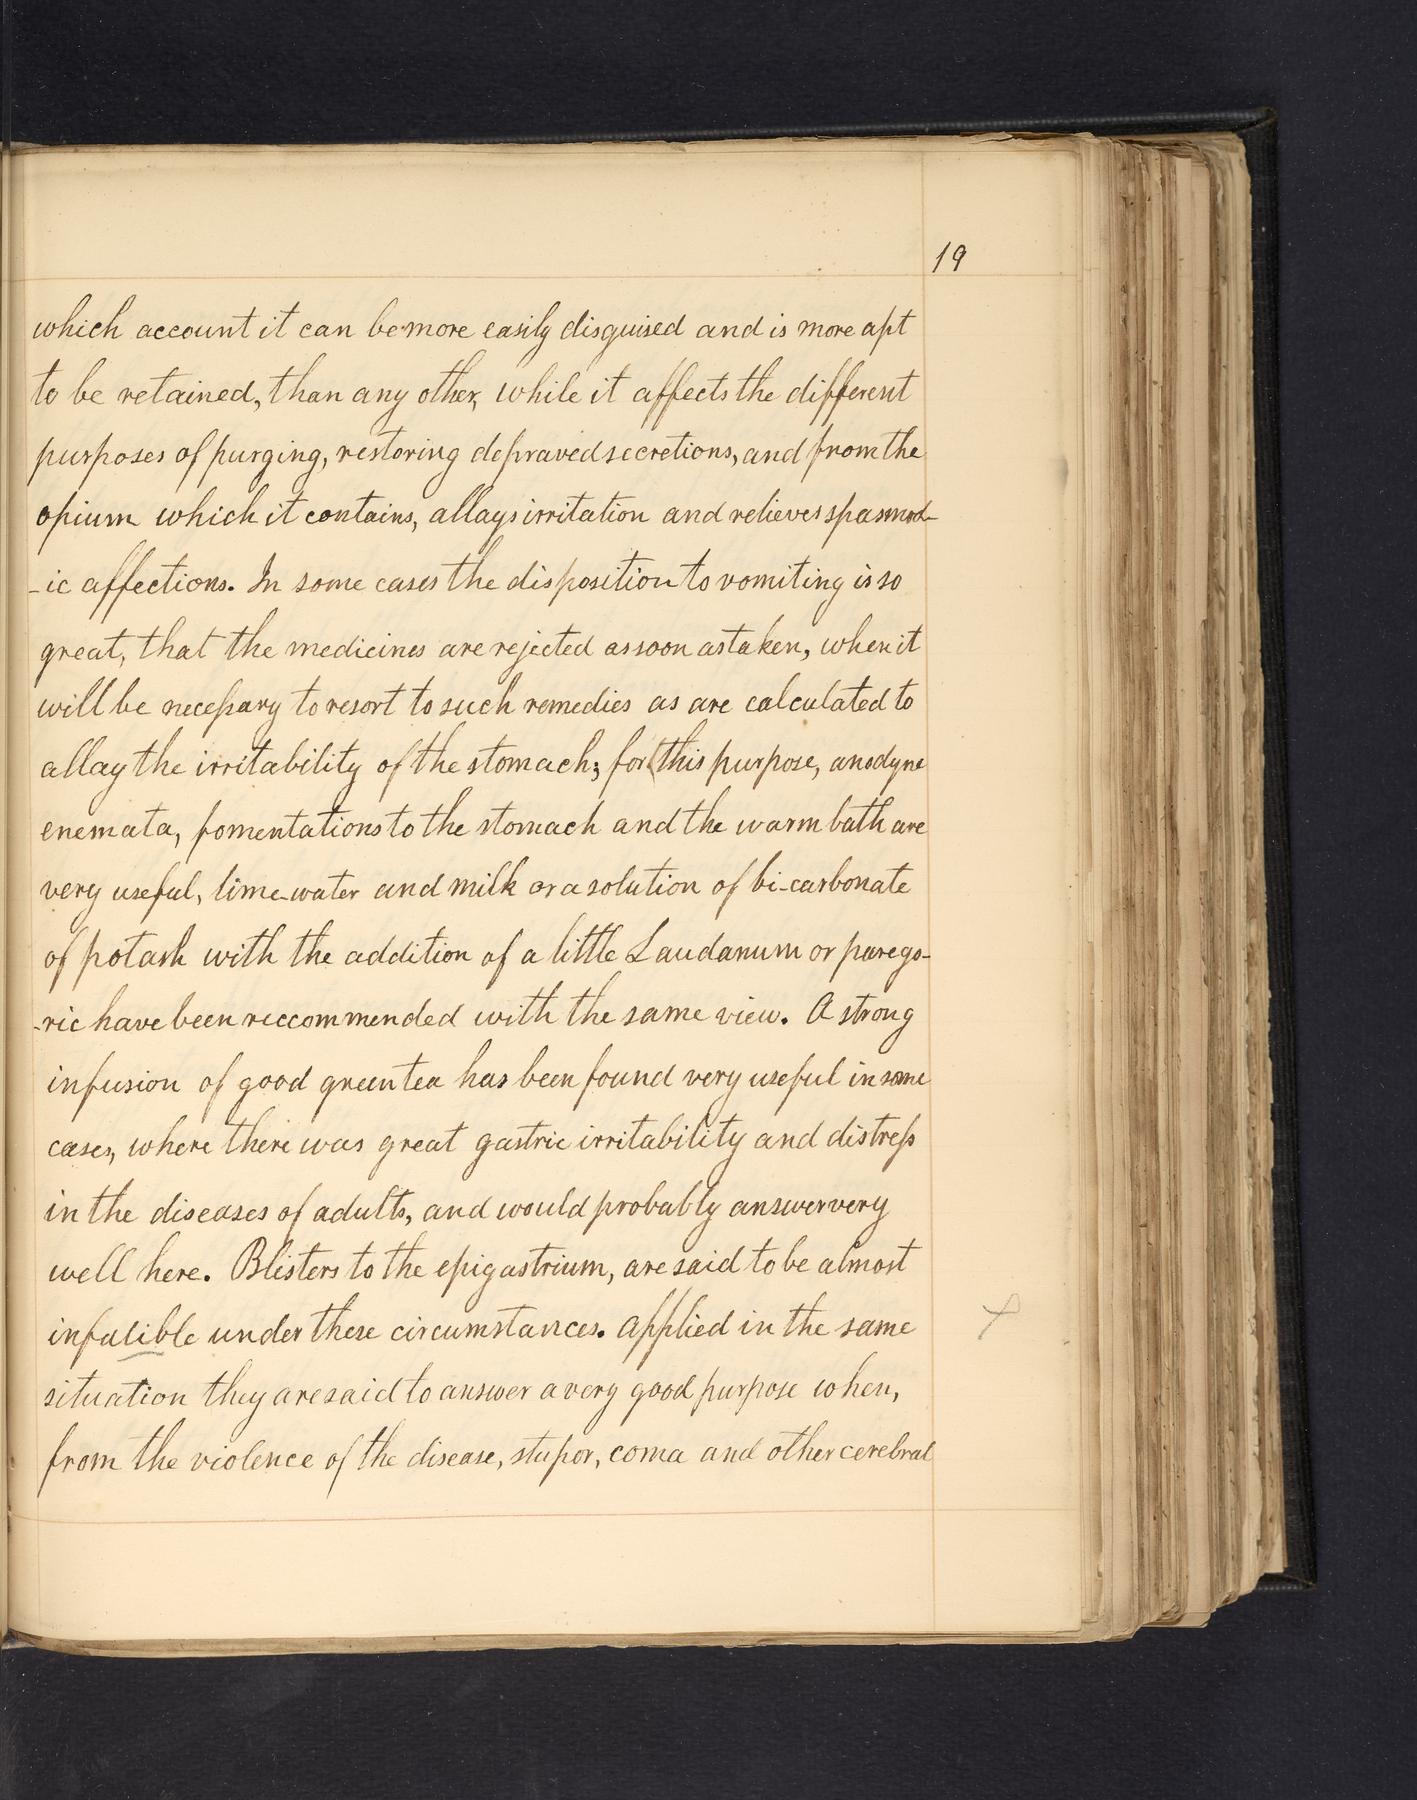 19
which account it can be more easily disguised and is more apt
to be retained, than any other, while it affects the different
purposes of purging, restoring depraved secretions, and from the
opium which it contains, allays irritation and relieves spasmod-
-ic affections. In some cases the disposition to vomiting is so
great, that the medicines are rejected as soon as taken, when it
will be necessary to resort to such remedies as are calculated to
allay the irritability of the stomach; for (this purpose, anodyne
enemata, fomentations to the stomach and the warm bath are
very useful, lime-water and milk or a solution of bi-carbonate
of potash with the addition of a little Laudanum or parego-
-ric have been reccommended with the same view. A strong
infusion of good green tea has been found very useful in some
cases, where there was great gastric irritability and distress
in the diseases of adults, and would probably answer very
well here. Blisters to the epigastrium, are said to be almost
infalible under these circumstances. applied in the same
situation they are said to answer a very good purpose when,
from the violence of the disease, stupor, coma and other cerebral